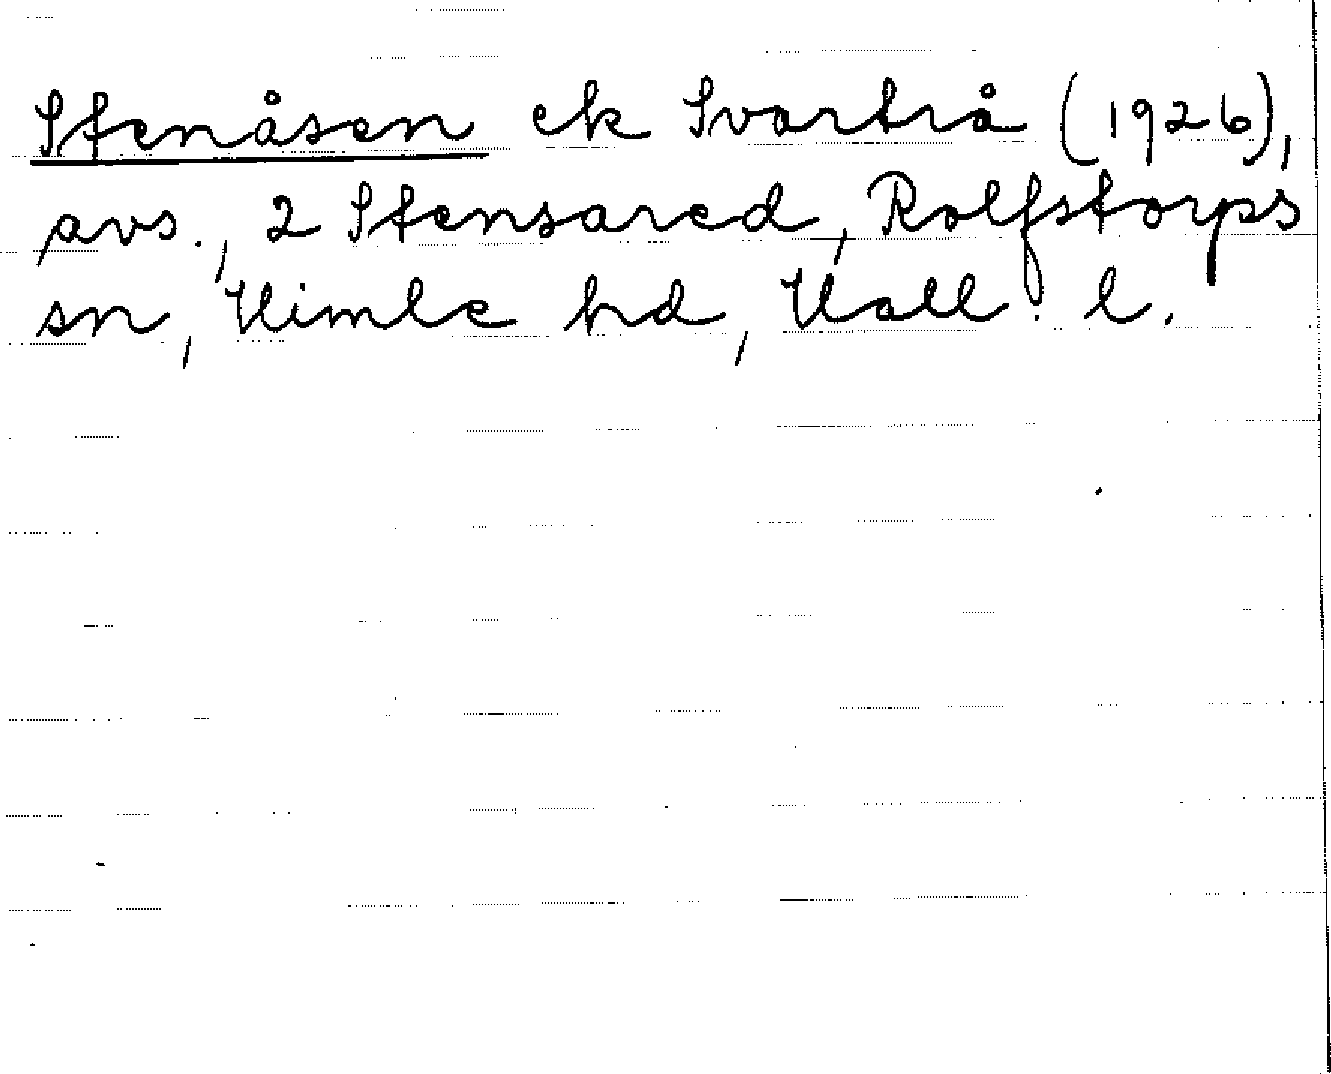 Stenåsen ek Svartrå (1926),
avs., 2 Stensared, Rolfstorps
sn, Himle hd, Hall. l.